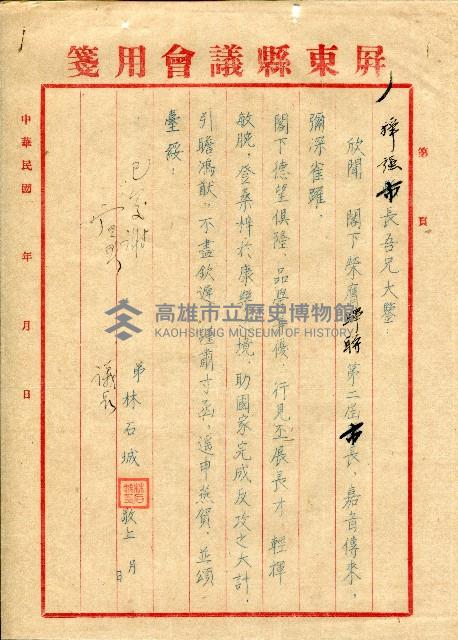 屏東縣議會用箋
第 頁
市長吾兄大鑒：
欣聞 閣下榮膺 第二屆市長，嘉音傳來，
彌深雀躍．
閣下德望俱隆，品學兼優，行見丕展長才，輕揮
敏腕，登桑梓於康樂境，助國家完成反攻之大計，
引瞻鴻猷，不盡欽遲，謹肅寸函，遙申燕賀，並頌
臺綏．
弟林石城 敬上 月 日
議長
已
中華民國 年 月 日
高雄市立歷史博物館
KAOHSIUNG MUSEUM OF HISTORY